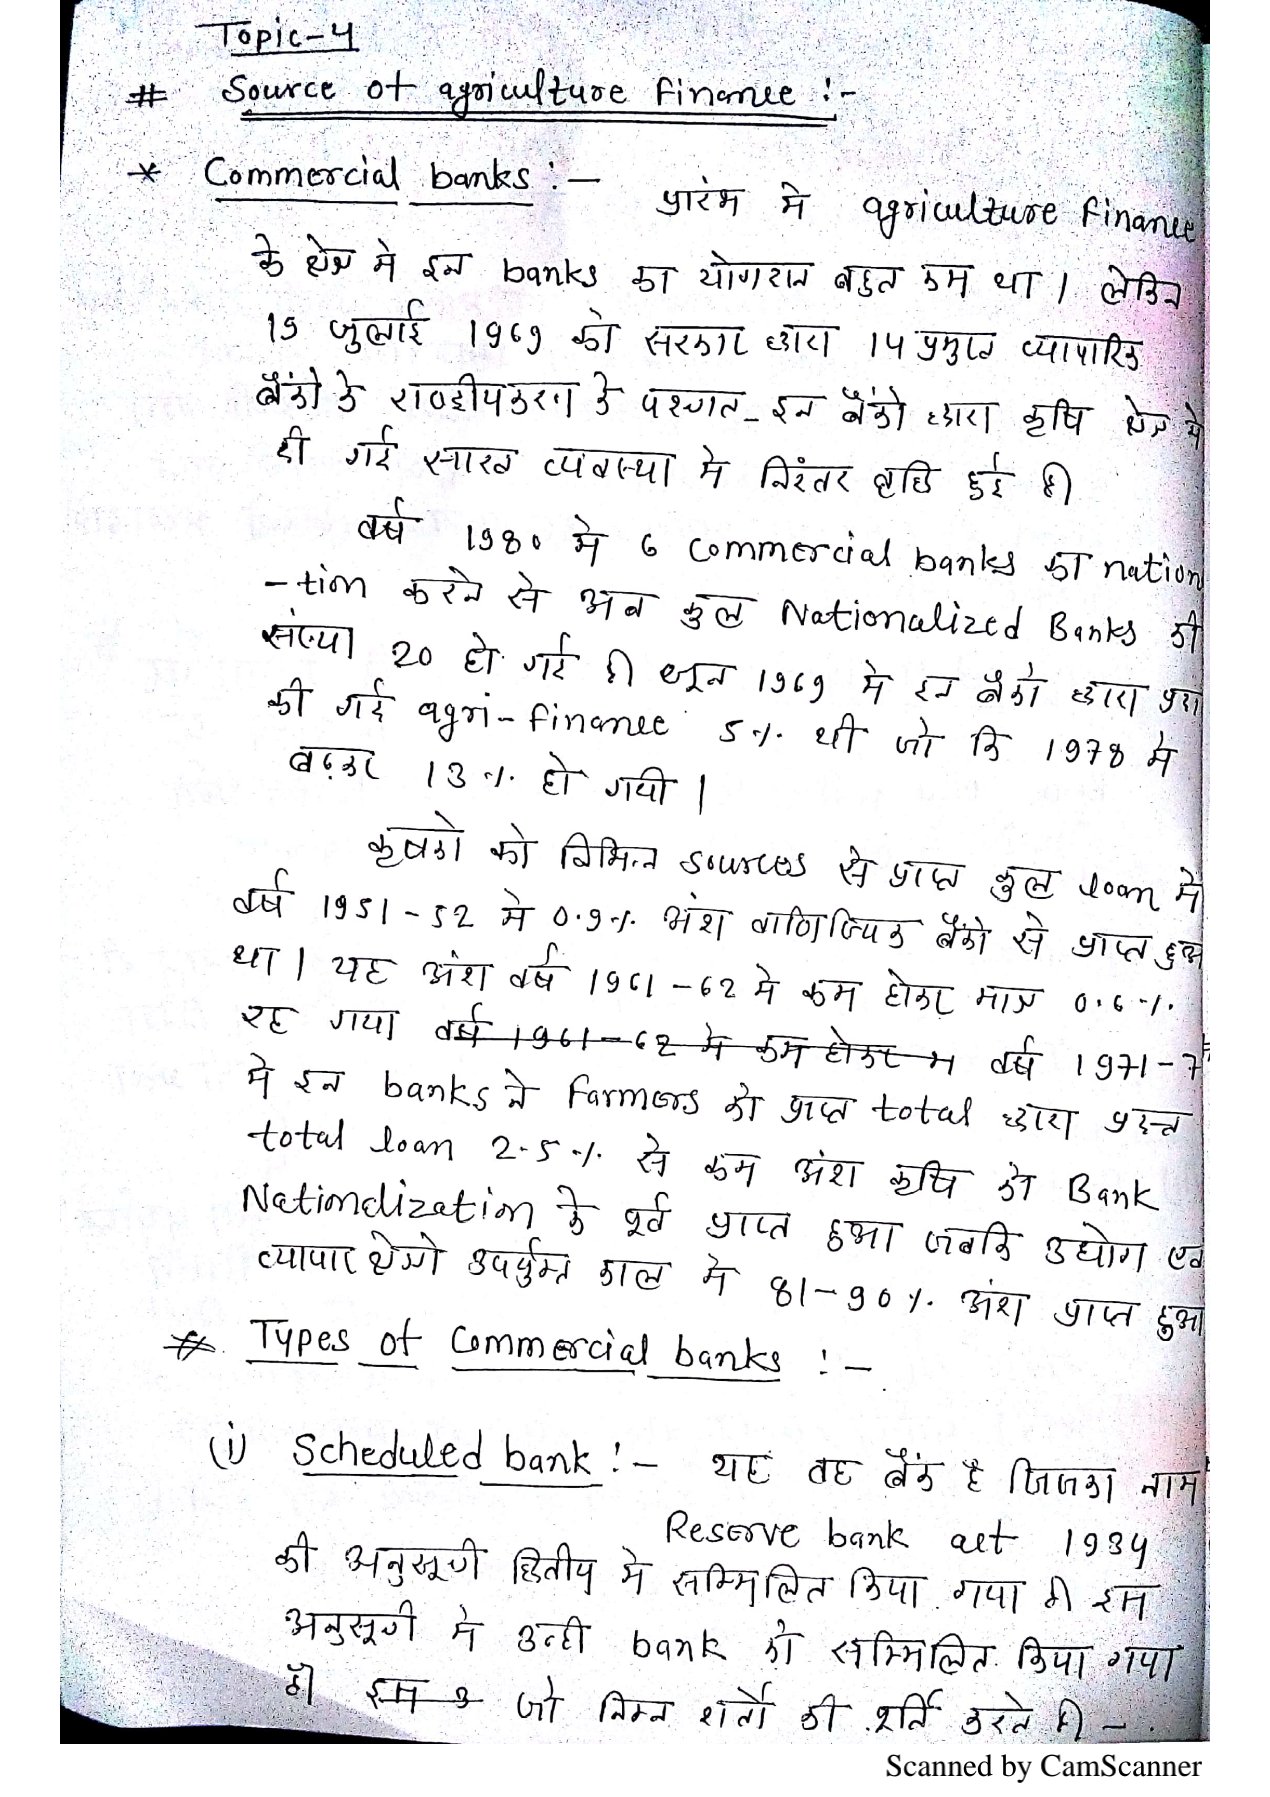 Topic-4
# Source of agriculture finance :-
* Commercial banks :- प्रारंभ मे agriculture finance
के क्षेत्र मे इन banks का योगदान बहुत कम था । लेकिन
19 जुलाई 1969 को सरकार द्वारा 14 प्रमुख व्यापारिक
बैंको के राष्ट्रीयकरण के पश्चात - इन बैंको द्वारा कृषि क्षेत्र मे
दी गई साख व्यवस्था मे निरंतर वृद्धि हुई है।
वर्ष 1980 मे 6 Commercial banks का nation
-tion करने से अब कुल Nationalized Banks की
संख्या 20 हो गई है। जून 1969 मे इन बैंको द्वारा
की गई agri-finance 5% थी जो कि 1978 मे
बढ़कर 13% हो गयी ।
कृषको को विभिन्न sources से प्राप्त कुल loan मे
वर्ष 1951-52 मे 0.9% अंश वाणिज्यिक बैंको से प्राप्त हुआ
था । यह अंश वर्ष 1961-62 मे कम होकर मात्र 0.6%
रह गया वर्ष 1961-62 मे कम होकर म वर्ष 1971-7
मे इन banks ने farmers को प्राप्त total द्वारा प्रदत्त
total loan 2.5% से कम अंश कृषि को Bank
Nationalization के पूर्व प्राप्त हुआ जबकि उद्योग एवं
व्यापार क्षेत्रो उपर्युक्त काल मे 81-90% अंश प्राप्त हुआ
# Types of Commercial banks :-
(i) Scheduled bank :- यह वह बैंक है जिसका नाम
Reserve bank act 1934
की अनुसूची द्वितीय मे सम्मिलित किया गया है। इस
अनुसूची मे उन्ही bank को सम्मिलित किया गया
है। इस जो निम्न शर्तो की पूर्ति करते है। -
Scanned by CamScanner